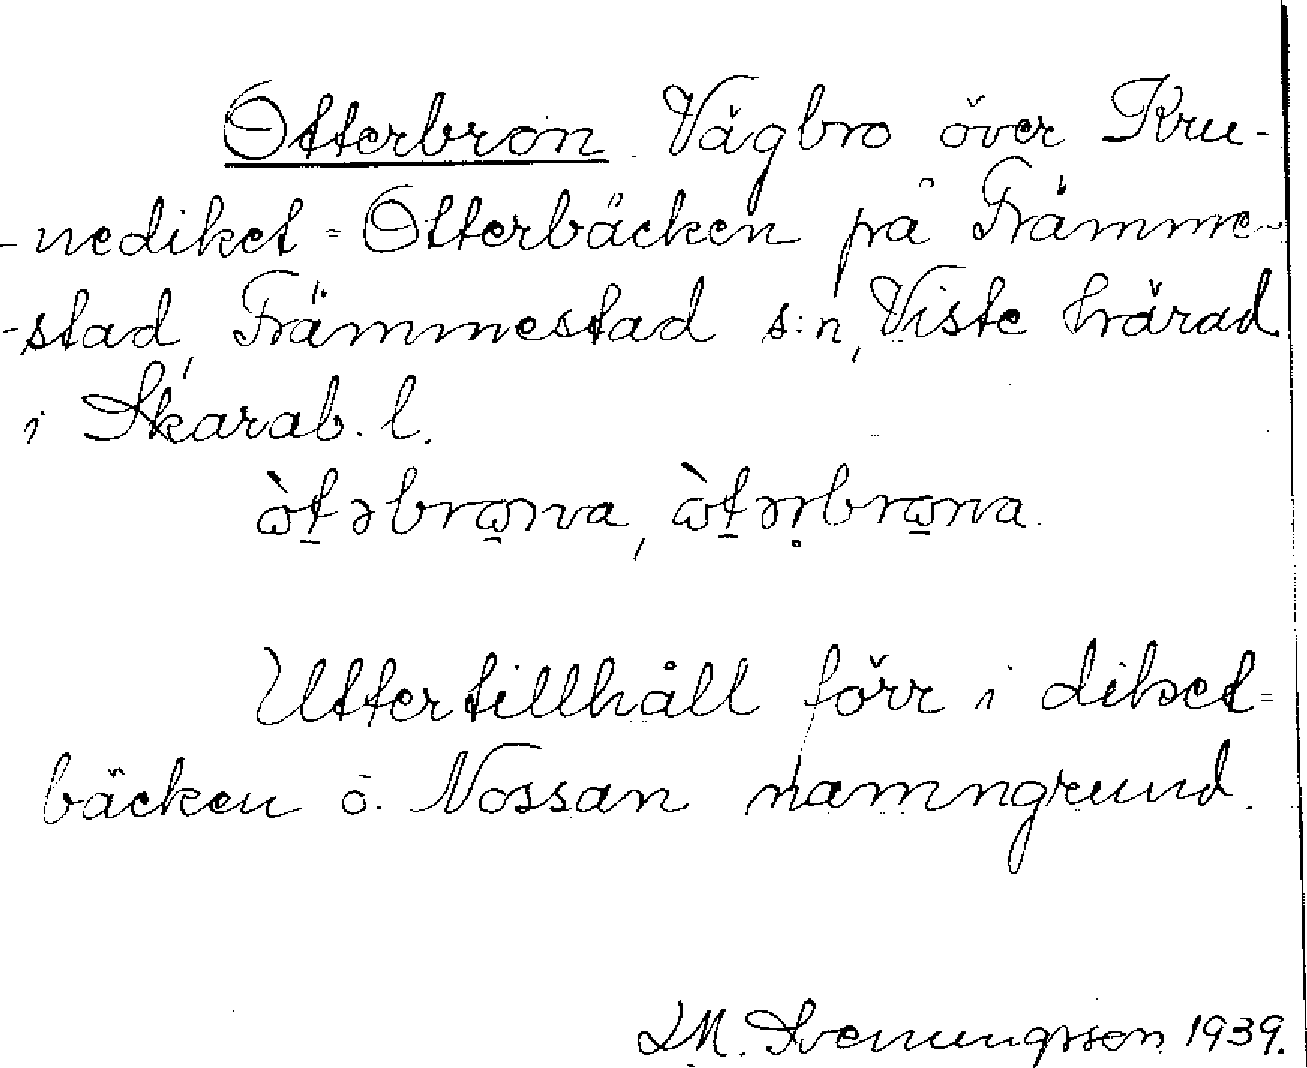 Otterbron Vägbro över Kru-
-nediket = Otterbäcken på Främme-
-stad, Främmestad s:n, Viste härad
i Skarab. l.
ὼt̠əbrω̠na, ὼt̠ər̥brω̠na.
Uttertillhåll förr i diket =
bäcken o. Nossan namngrund.
L M. Svenungsson 1939.